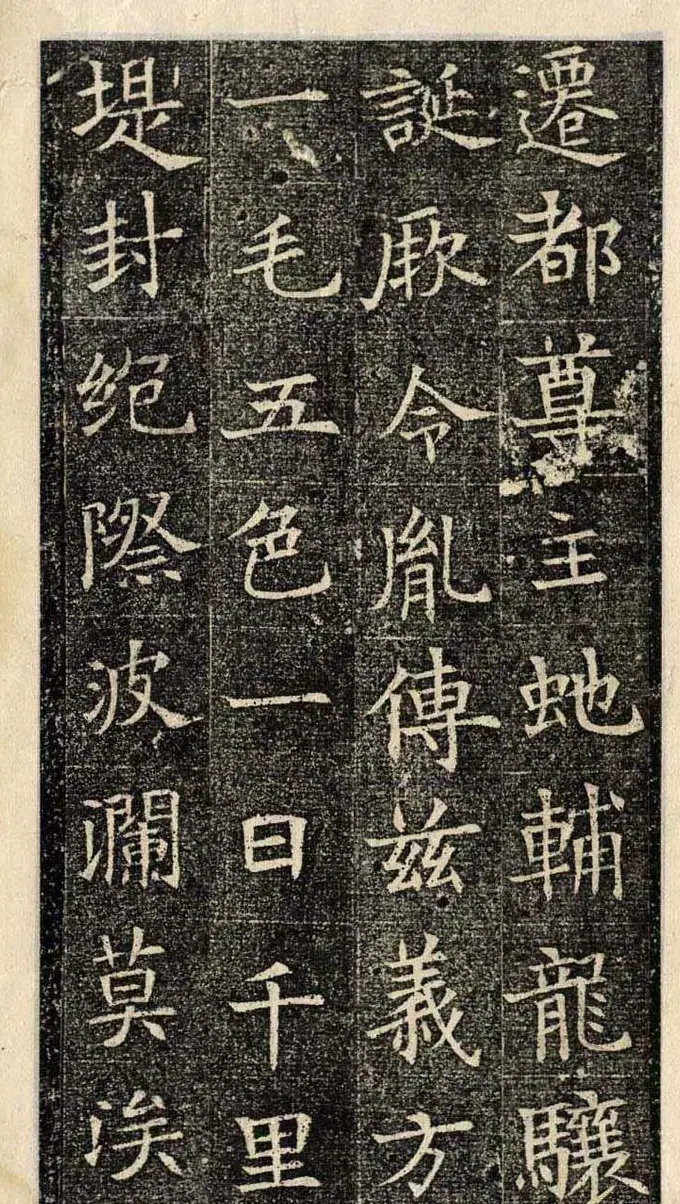 遷都尊主虵輔龍驤
誕厥令胤傳茲義方
一毛五色一日千里
堤封綿際波瀾莫涘